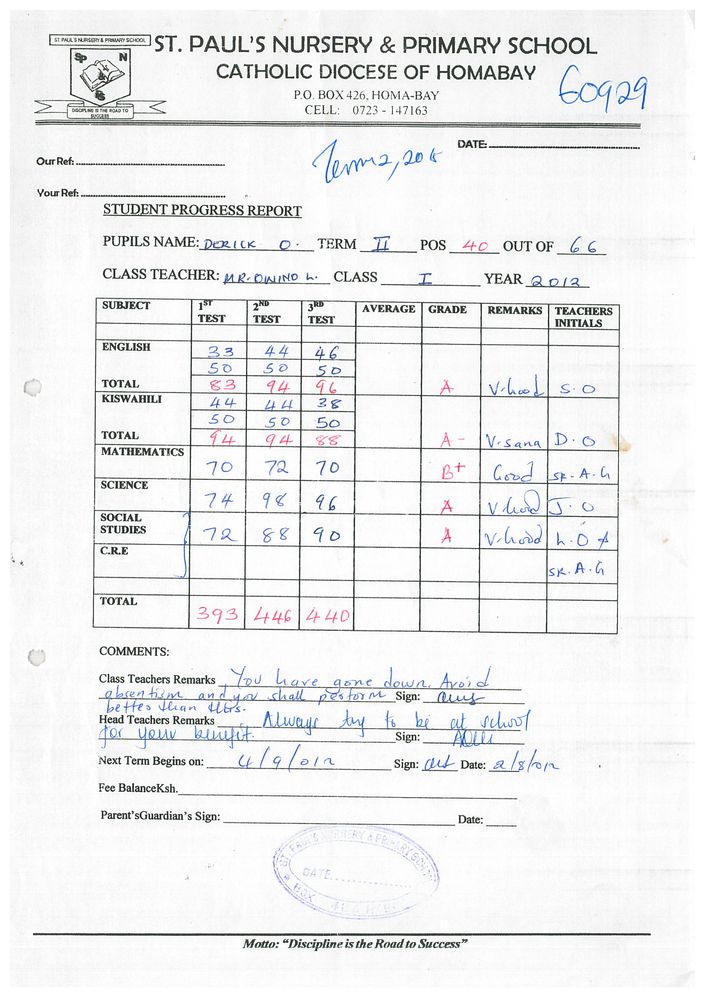 ST. PAUL'S NURSERY & PRIMARY SCHOOL
SP N
PS
DISCIPLINE IS THE ROAD TO SUCCESS
ST. PAUL'S NURSERY & PRIMARY SCHOOL
CATHOLIC DIOCESE OF HOMABAY
P.O. BOX 426, HOMA-BAY
CELL: 0723 - 147163
60929
DATE:
Our Ref:
Term 2, 201
Your Ref:
STUDENT PROGRESS REPORT
PUPILS NAME: DERICK O. TERM II POS 40 OUT OF 66
CLASS TEACHER: MR. OWINO L. CLASS I YEAR 2012
SUBJECT 1ST TEST 2ND TEST 3RD TEST AVERAGE GRADE REMARKS TEACHERS INITIALS
ENGLISH 33 44 46
50 50 50
TOTAL 83 94 96 A V. Good S. O
KISWAHILI 44 44 38
50 50 50
TOTAL 94 94 88 A- V. sana D. O
MATHEMATICS 70 72 70 B+ Good SR. A. G
SCIENCE 74 98 96 A V Good J. O
SOCIAL STUDIES 72 88 90 A V. Good L. O A
C.R.E SR. A. G
TOTAL 393 446 440
COMMENTS:
Class Teachers Remarks You have gone down. Avoid
absentism and you shall perform Sign:
better than this.
Head Teachers Remarks Always try to be at school
for your benefit. Sign:
Next Term Begins on: 4/9/012 Sign: Date: 2/8/012
Fee BalanceKsh.
Parent'sGuardian's Sign: Date:
ST. PAUL'S NURSERY & PRIMARY SCHOOL
DATE
BOX 426
Motto: "Discipline is the Road to Success"